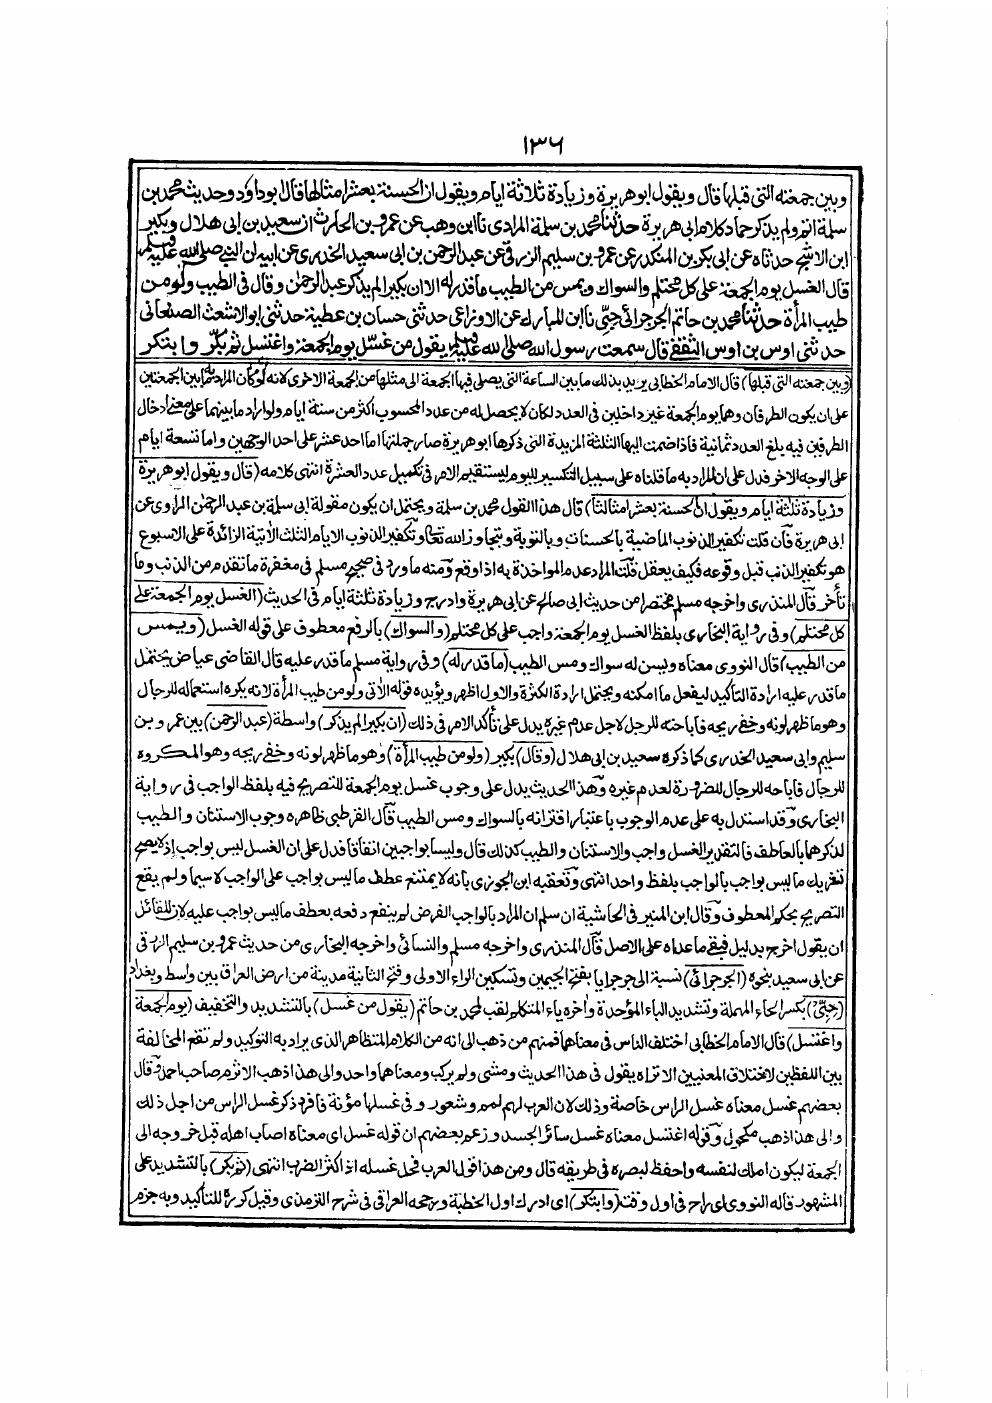 ١٣٦
وبين جمعته التى قبلها قال ويقول ابوهريرة وزيادة ثلاثة ايام ويقول ان الحسنة بعشر امثالها قال ابوداود وحديث محمد بن
سلمة اتم ولم يذكر حماد كلام ابى هريرة حدثنا محمد بن سلمة المرادى نا ابن وهب عن عمرو بن الحارث ان سعيد بن ابى هلال وبكير
ابن الاشج حدثاه عن ابى بكر بن المنكدر عن عمرو بن سليم الزرقى عن عبد الرحمن بن ابى سعيد الخدرى عن ابيه ان النبى صلى الله عليه وسلم
قال الغسل يوم الجمعة على كل محتلم والسواك ويمس من الطيب ما قدر له الا ان بكيرا لم يذكر عبد الرحمٰن وقال فى الطيب ولو من
طيب المرأة حدثنا محمد بن حاتم الجرجرائى حِبِّى نا ابن المبارك عن الاوزاعى حدثنى حسان بن عطية حدثنى ابو الاشعث الصنعانى
حدثنى اوس بن اوس الثقفى قال سمعت رسول الله صلى الله عليه وسلم يقول من غسّل يوم الجمعة واغتسل ثم بكّر وابتكر
(وبين جمعته التى قبلها) قال الامام الخطابى يريد بذلك ما بين الساعة التى يصلى فيها الجمعة الى مثلها من الجمعة الاخرى لانه لو كان المراد به ما بين الجمعتين
على ان يكون الطرفان وهما يوم الجمعة غير داخلين فى العدد لكان لا يحصل له من عدد المحسوب اكثر من ستة ايام ولو اراد ما بينهما على معنى ادخال
الطرفين فيه بلغ العدد ثمانية فاذا ضمت اليها الثلثة المزيدة التى ذكرها ابوهريرة صار جملتها اما احد عشر على احد الوجهين واما تسعة ايام
على الوجه الاخر فدل على ان المراد به ما قلناه على سبيل التكسير لليوم ليستقيم الامر فى تكميل عدد العشرة انتهى كلامه (قال ويقول ابوهريرة
وزيادة ثلثة ايام ويقول ان الحسنة بعشر امثالها) قال هذا القول محمد بن سلمة ويحتمل ان يكون مقولة ابى سلمة بن عبد الرحمٰن الراوى عن
ابى هريرة فان قلت تكفير الذنوب الماضية بالحسنات وبالتوبة وبتجاوز الله تعالى وتكفير الذنوب الايام الثلث الأتية الزائدة على الاسبوع
هو تكفير الذنب قبل وقوعه فكيف يعقل قلت المراد عدم المواخذة به اذا وقع ومنه ما ورد فى صحيح مسلم فى مغفرة ما تقدم من الذنب وما
تأخر قال المنذرى واخرجه مسلم مختصرا من حديث ابى صالح عن ابى هريرة وادرج وزيادة ثلثة ايام فى الحديث (الغسل يوم الجمعة على
كل محتلم) وفى رواية البخارى بلفظ الغسل يوم الجمعة واجب على كل محتلم (والسواك) بالرفع معطوف على قوله الغسل (ويمس
من الطيب) قال النووى معناه ويسن له سواك ومس الطيب (ما قدر له) وفى رواية مسلم ما قدر عليه قال القاضى عياض يحتمل
ما قدر عليه ارادة التأكيد ليفعل ما امكنه ويحتمل ارادة الكثرة والاول اظهر ويؤيده قوله الأتى ولو من طيب المرأة لانه يكره استعماله للرجال
وهو ما ظهر لونه وخفى ريحه فاباحته للرجل لاجل عدم غيره يدل على تأكد الامر فى ذلك (ان بكيرا لم يذكر) واسطة (عبد الرحمن) بين عمرو بن
سليم وابى سعيد الخدرى كما ذكره سعيد بن ابى هلال (وقال) بكير (ولو من طيب المرأة) وهو ما ظهر لونه وخفى ريحه وهو المكروه
للرجال فاباحه للرجال للضرورة لعدم غيره وهذا الحديث يدل على وجوب غسل يوم الجمعة للتصريح فيه بلفظ الواجب فى رواية
البخارى وقد استدل به على عدم الوجوب باعتبار اقترانه بالسواك ومس الطيب قال القرطبى ظاهره وجوب الاستنان والطيب
لذكرهما بالعاطف فالتقدير الغسل واجب والاستنان والطيب كذلك قال وليسا بواجبين اتفاقا فدل على ان الغسل ليس بواجب اذ لا يصح
تشريك ما ليس بواجب بالواجب بلفظ واحد انتهى وتعقبه ابن الجوزى بانه لا يمتنع عطف ما ليس بواجب على الواجب لا سيما ولم يقع
التصريح بحكم المعطوف وقال ابن المنير فى الحاشية ان سلم ان المراد بالواجب الفرض لم ينفع دفعه بعطف ما ليس بواجب عليه لان للقائل
ان يقول اخرج بدليل فبقى ما عداه على الاصل قال المنذرى واخرجه مسلم والنسائى واخرجه البخارى من حديث عمرو بن سليم الزرقى
عن ابى سعيد بنحوه (الجرجرائى) نسبة الى جرجرايا بفتح الجيمين وتسكين الراء الاولى وفتح الثانية مدينة من ارض العراق بين واسط وبغداد
(حِبِّى) بكسر الحاء المهملة وتشديد الباء المؤحدة واخره ياء المتكلم لقب لمحمد بن حاتم (يقول من غسل) بالتشديد والتخفيف (يوم الجمعة
واغتسل) قال الامام الخطابى اختلف الناس فى معناهما فمنهم من ذهب الى انه من الكلام المتظاهر الذى يراد به التوكيد ولم تقع المخالفة
بين اللفظين لاختلاف المعنيين الا تراه يقول فى هذا الحديث ومشى ولم يركب ومعناهما واحد والى هذا ذهب الاثرم صاحب احمد وقال
بعضهم غسل معناه غسل الراس خاصة وذلك لان العرب لهم لمم وشعور وفى غسلها مؤنة فافرد ذكر غسل الراس من اجل ذلك
والى هذا ذهب مكحول وقوله اغتسل معناه غسل سائر الجسد وزعم بعضهم ان قوله غسل اى معناه اصاب اهله قبل خروجه الى
الجمعة ليكون املك لنفسه واحفظ لبصره فى طريقه قال ومن هذا قول العرب فحل غسلة اذا كثر الضرب انتهى (ثم بكر) بالتشديد على
المشهور قاله النووى اى راح فى اول وقته (وابتكر) اى ادرك اول الخطبة ورجحه العراقى فى شرح الترمذى وقيل كرره للتأكيد وبه جزم